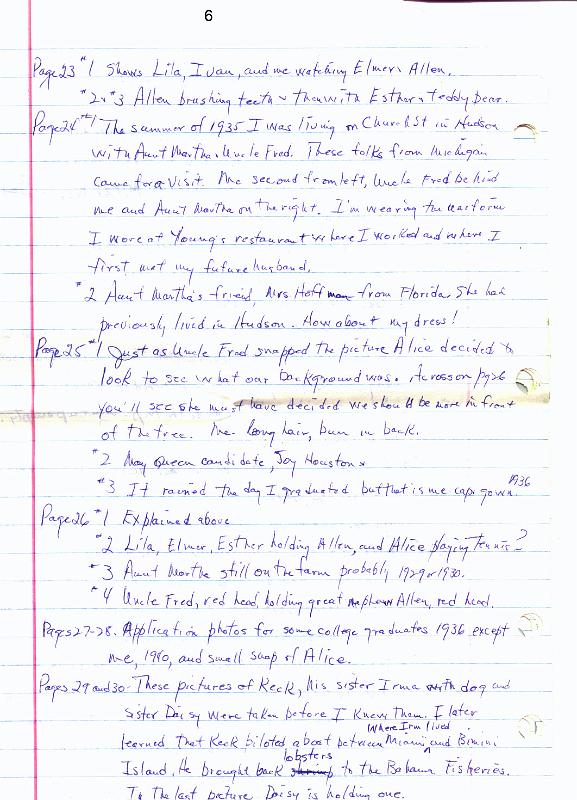 6
Page 23 #1 Shows Lila, Ivan, and me watching Elmer & Allen.
#2 & #3 Allen brushing teeth & then with Esther & Teddy bear.
Page 24 #1 The summer of 1935 I was living on Church St in Hudson
with Aunt Martha & Uncle Fred. These folks from Michigan
came for a visit. Me second from left, Uncle Fred behind
me and Aunt Martha on the right. I'm wearing the uniform
I wore at Young's restaurant where I worked and where I
first met my future husband.
#2 Aunt Martha's friend, Mrs Hoffman from Florida. She had
previously lived in Hudson. How about my dress!
Page 25 #1 Just as Uncle Fred snapped the picture Alice decided to
look to see what our background was. Across on pg 26
you'll see she must have decided we should be more in front
of the tree. Me - long hair, bun in back.
#2 May Queen candidate, Joy Houston
#3 It rained the day I graduated but that is me cap & gown. 1936
Page 26 #1 Explained above
#2 Lila, Elmer, Esther holding Allen, and Alice playing tennis?
#3 Aunt Martha still on the farm probably 1929 or 1930.
#4 Uncle Fred, red head, holding great nephew Allen, red head.
Pages 27-28. Application photos for some college graduates 1936 except
me, 1940, and small snap of Alice.
Pages 29 and 30 - These pictures of Keck, his sister Irma with dog and
sister Daisy were taken before I knew them. I later
learned that Keck piloted a boat between Miami where Irm lived and Bimini
Island. He brought back lobsters to the Bahama Fisheries.
In the last picture Daisy is holding one.